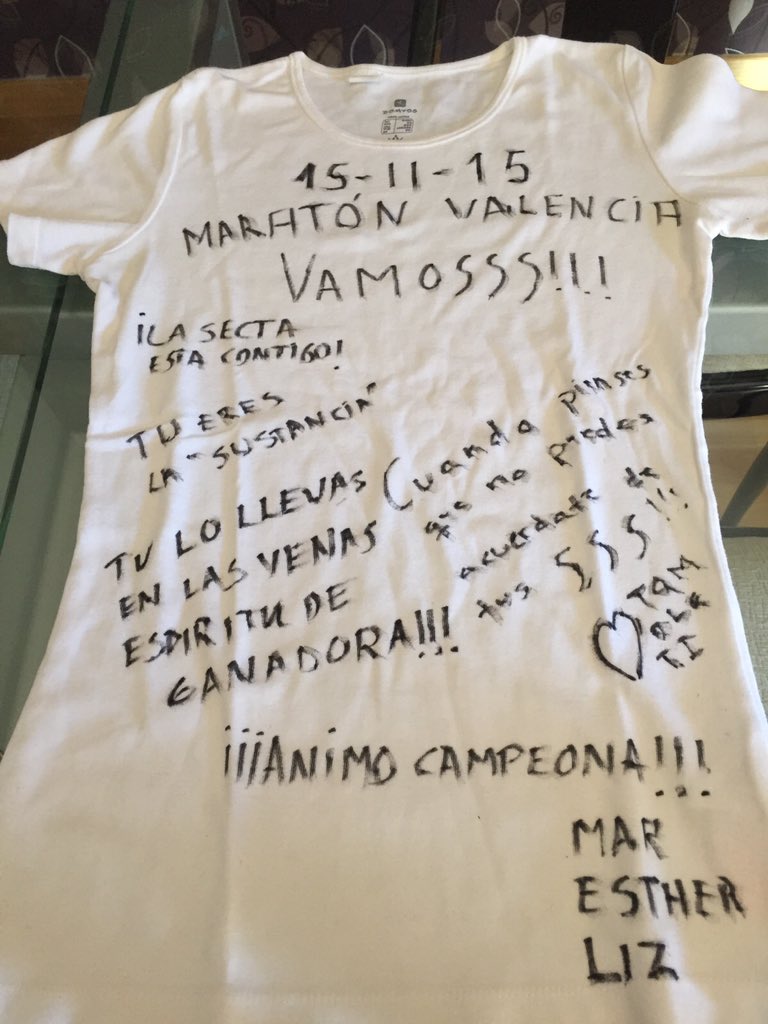 DOMYOS
15-11-15
MARATÓN VALENCIA
VAMOSSS!!!
¡LA SECTA
ESTA CONTIGO!
TU ERES
LA "SUSTANCIA"
TU LO LLEVAS
EN LAS VENAS
ESPIRITU DE
GANADORA!!!
Cuando pienses
que no puedes
acuerdate de
tus SSS!!!
¡¡¡ANIMO CAMPEONA!!!
MAR
ESTHER
LIZ